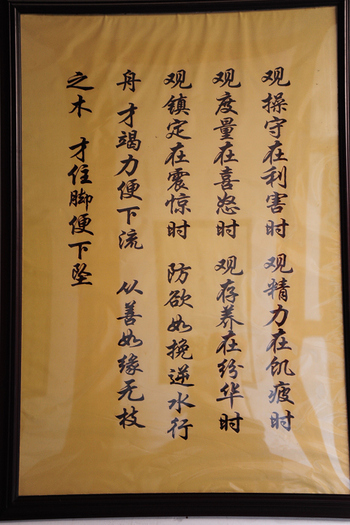 观操守在利害时 观精力在饥疲时
观度量在喜怒时 观存养在纷华时
观镇定在震惊时 防欲如挽逆水行
舟 才竭力便下流 从善如缘无枝
之木 才住脚便下坠